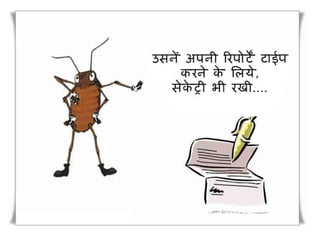 उसनें अपनी रिपोर्टें टाईप
करने के लिये,
सेकेट्री भी रखी....